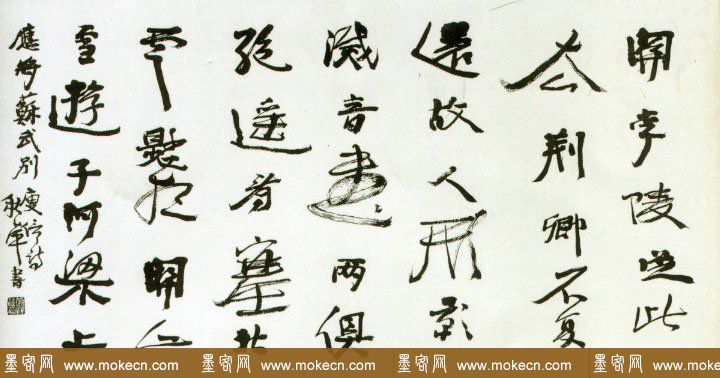 關李陵從此
去荆卿不复
還故人形影
滅音書两俱
絶遥看塞北
雲懸想關山
雪遊子河梁上
應將蘇武别 庾信詩
書
墨客网 www.mokecn.com 墨客网 www.mokecn.com 墨客网 www.mokecn.com 墨客网 www.mokecn.com